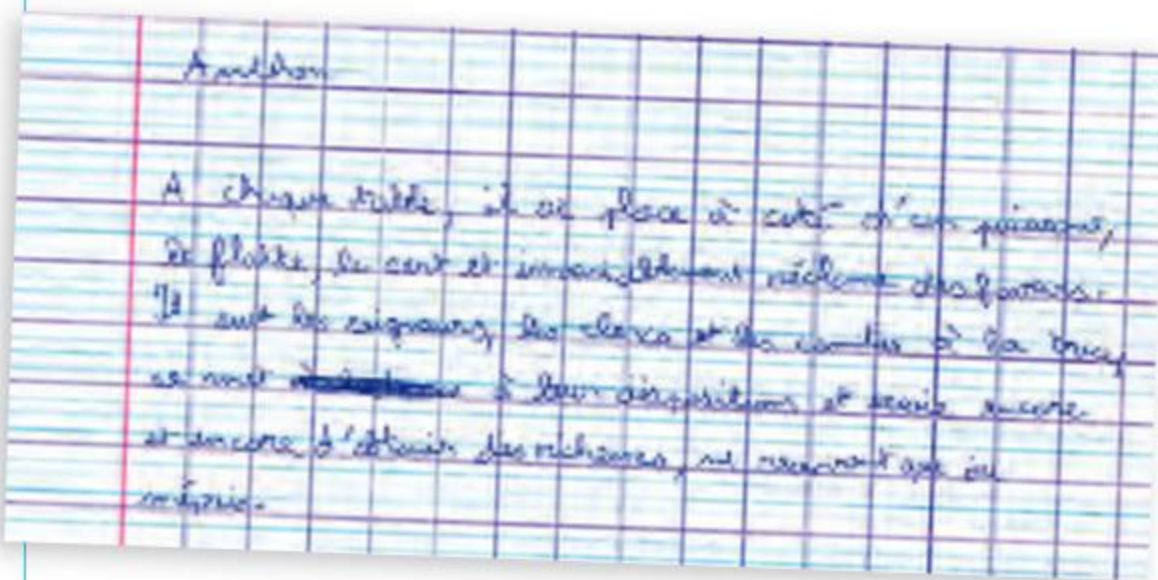 A chaque table, il se place à côté d'un puissant,
le flatte, le sert et invariablement réclame des faveurs.
Il suit les seigneurs, les clercs et les comtes à la trace,
se met à leur disposition et essaie encore
et encore d'obtenir des richesses, ne recevant que du
mépris.